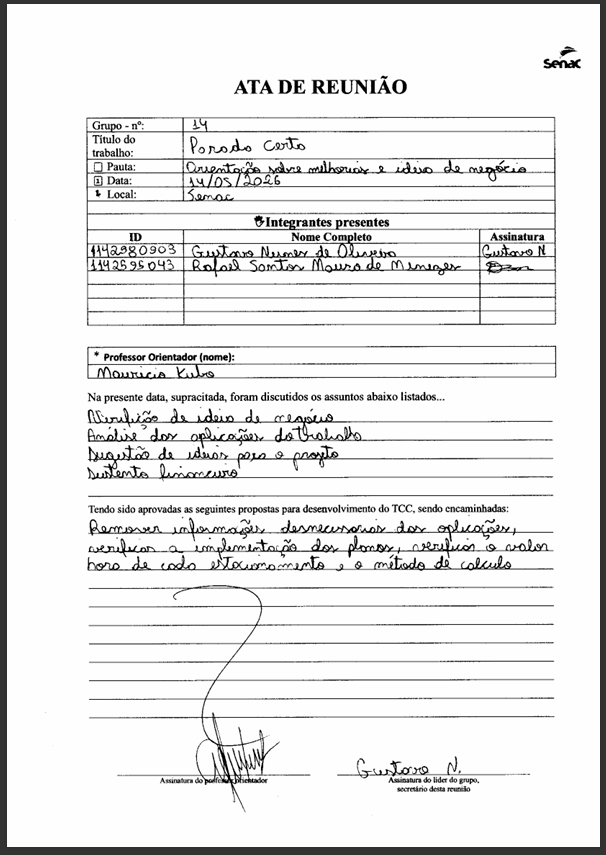 Senac
ATA DE REUNIÃO
Grupo - nº: 14
Título do trabalho: Parada Certa
Pauta: Orientação sobre melhorias e ideia de negócio
Data: 14/05/2026
Local: Senac
Integrantes presentes
ID Nome Completo Assinatura
1142980903 Gustavo Nunes de Oliveira Gustavo N
1142595043 Rafael Santos Mauro de Menezes
* Professor Orientador (nome):
Mauricio Kubo
Na presente data, supracitada, foram discutidos os assuntos abaixo listados...
Verificação de ideia de negócio
Análise das aplicações do trabalho
Sugestão de ideias para o projeto
Sustento financeiro
Tendo sido aprovadas as seguintes propostas para desenvolvimento do TCC, sendo encaminhadas:
Remover informações desnecessarias das aplicações,
verificar a implementação dos planos, verificar o valor
hora de cada estacionamento e o método de calculo
Gustavo N.
Assinatura do professor orientador
Assinatura do líder do grupo,
secretário desta reunião